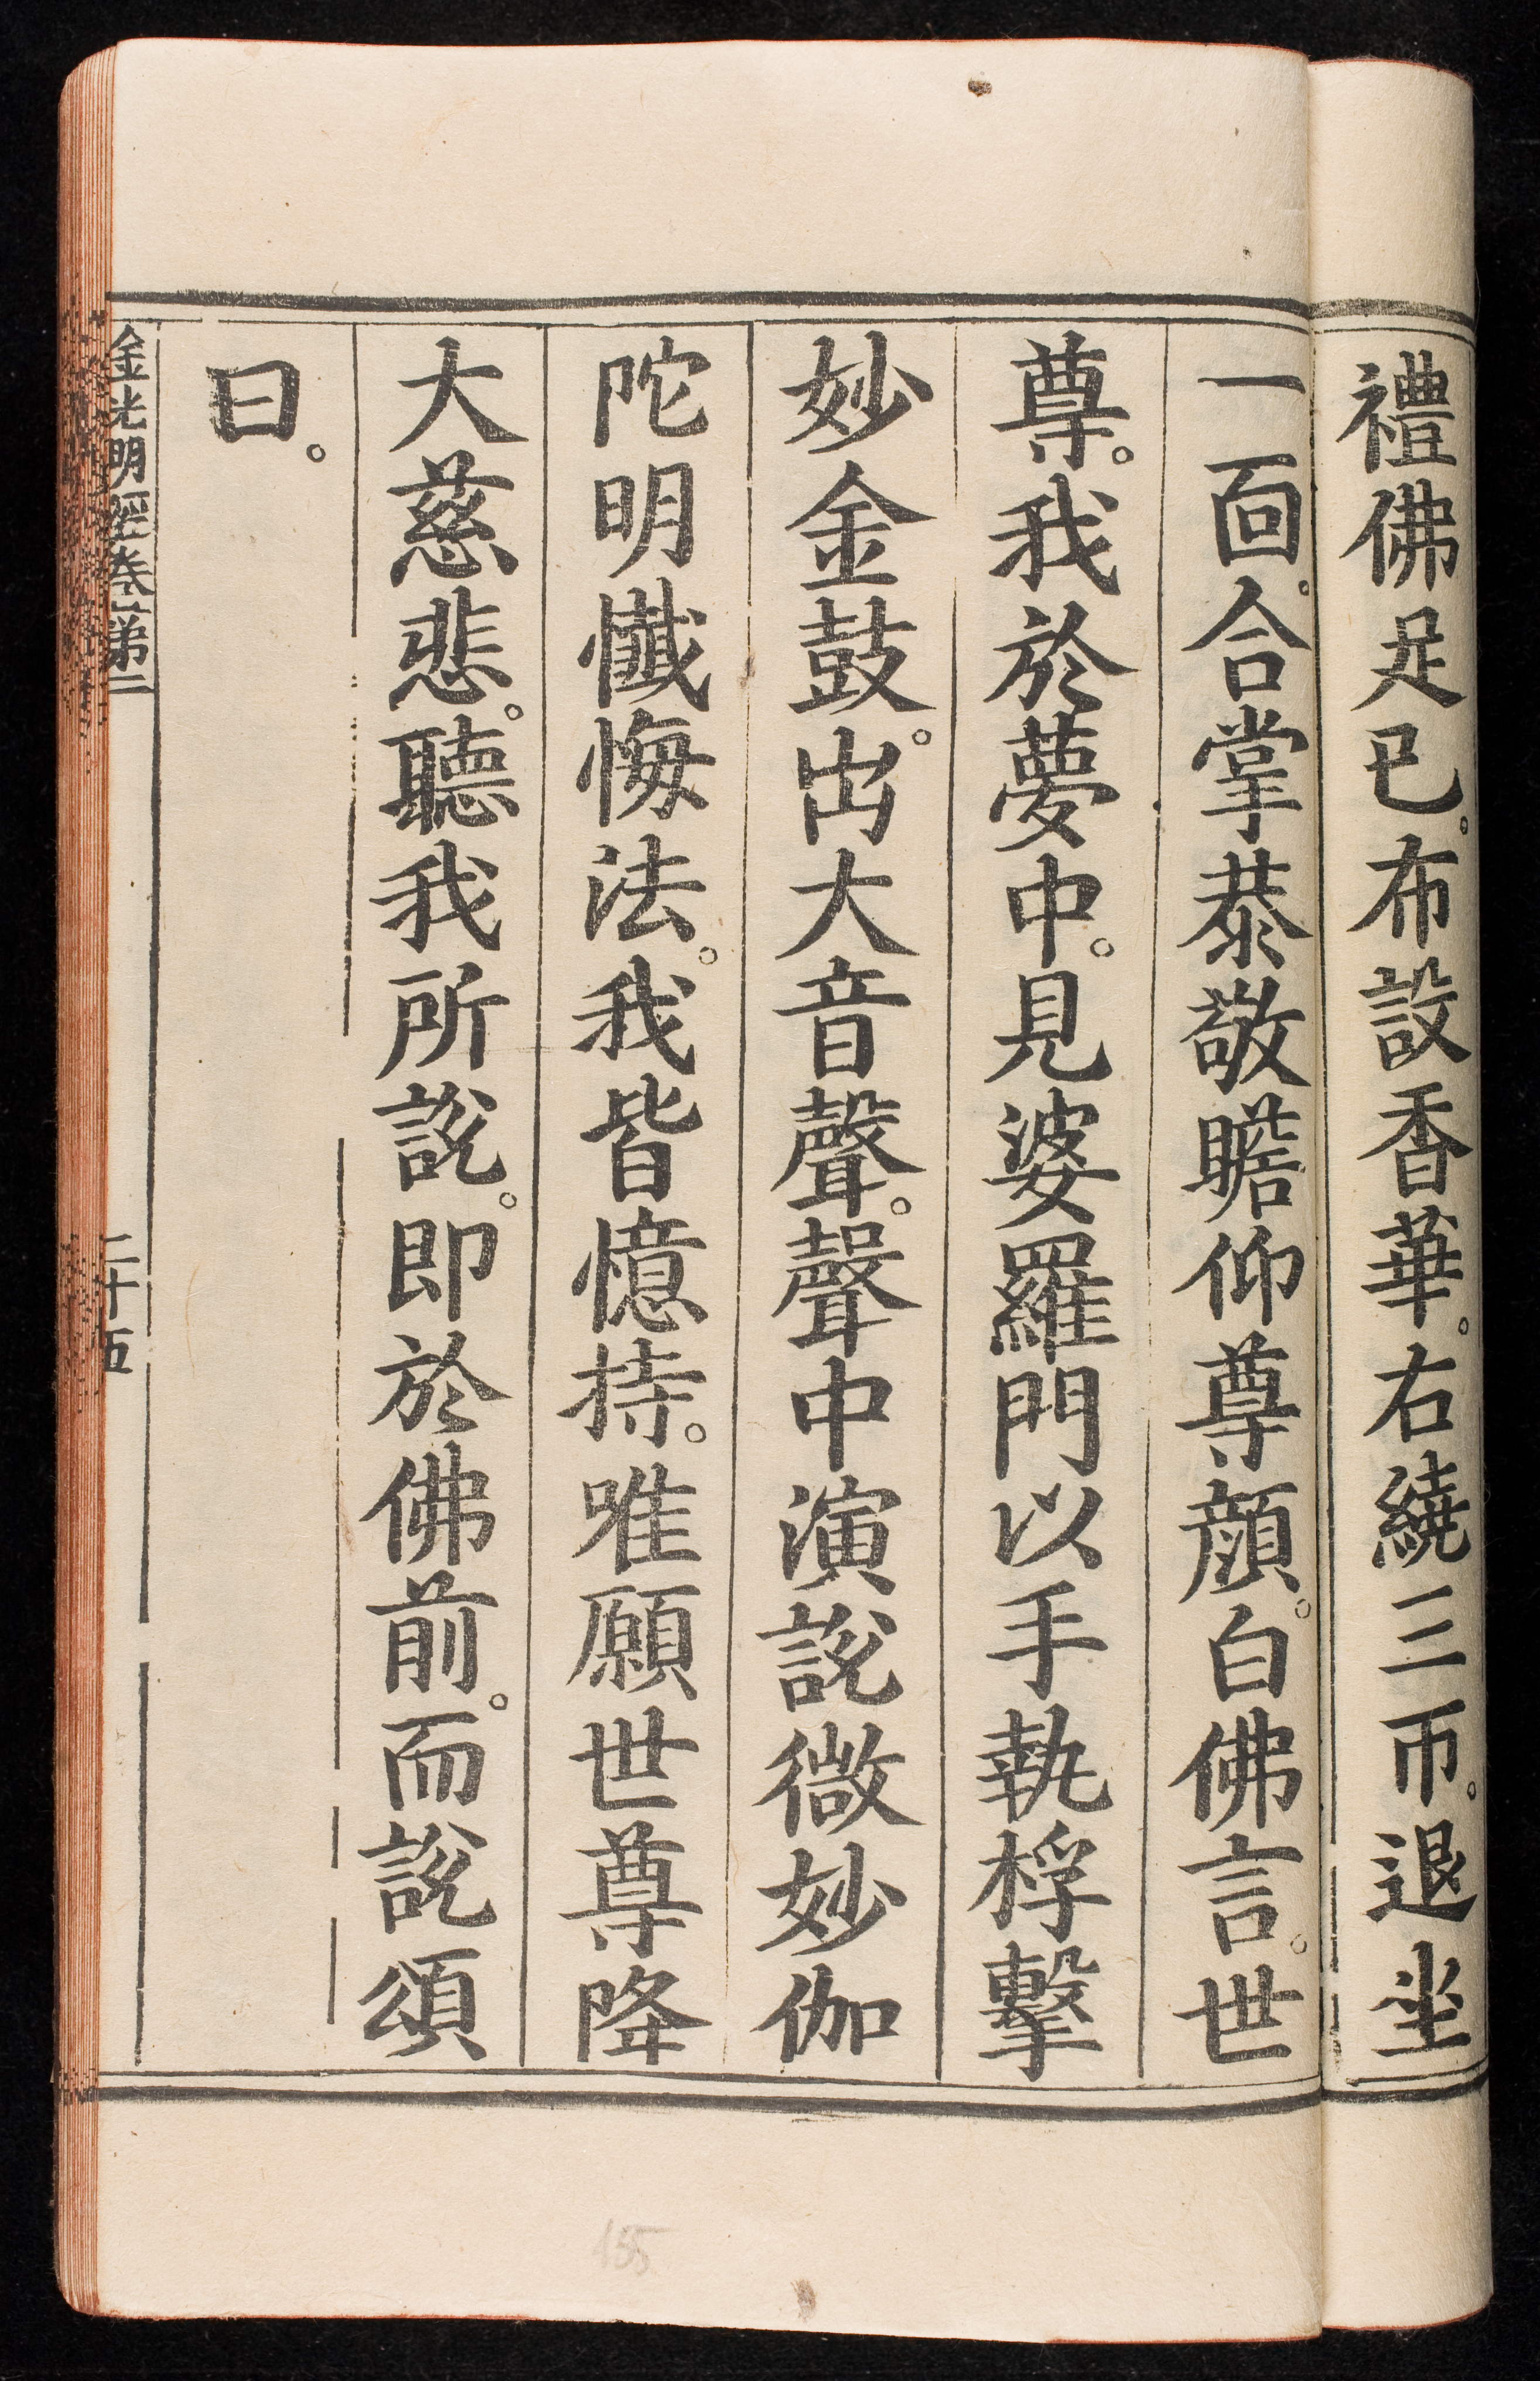 禮佛足已。布設香華。右繞三帀。退坐
一面。合掌恭敬瞻仰尊顔。白佛言。世
尊。我於夢中。見婆羅門以手執桴擊
妙金鼓。出大音聲。聲中演說微妙伽
陀明懺悔法。我皆憶持。唯願世尊降
大慈悲。聽我所說。即於佛前。而說頌
曰。
金光明經卷第二
二十五
155